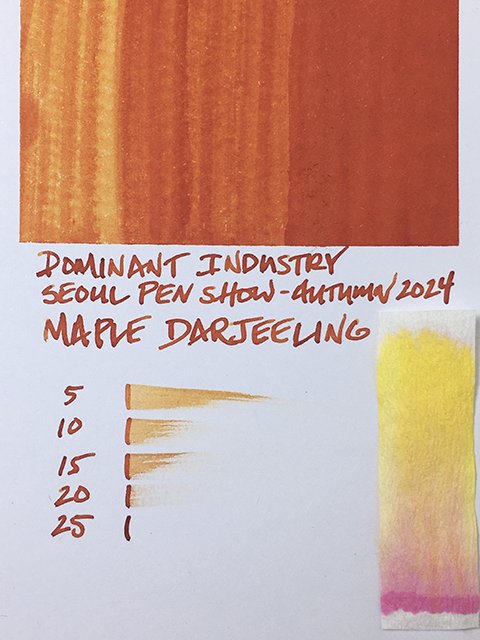 DOMINANT INDUSTRY
SEOUL PEN SHOW - AUTUMN 2024
MAPLE DARJEELING
5
10
15
20
25